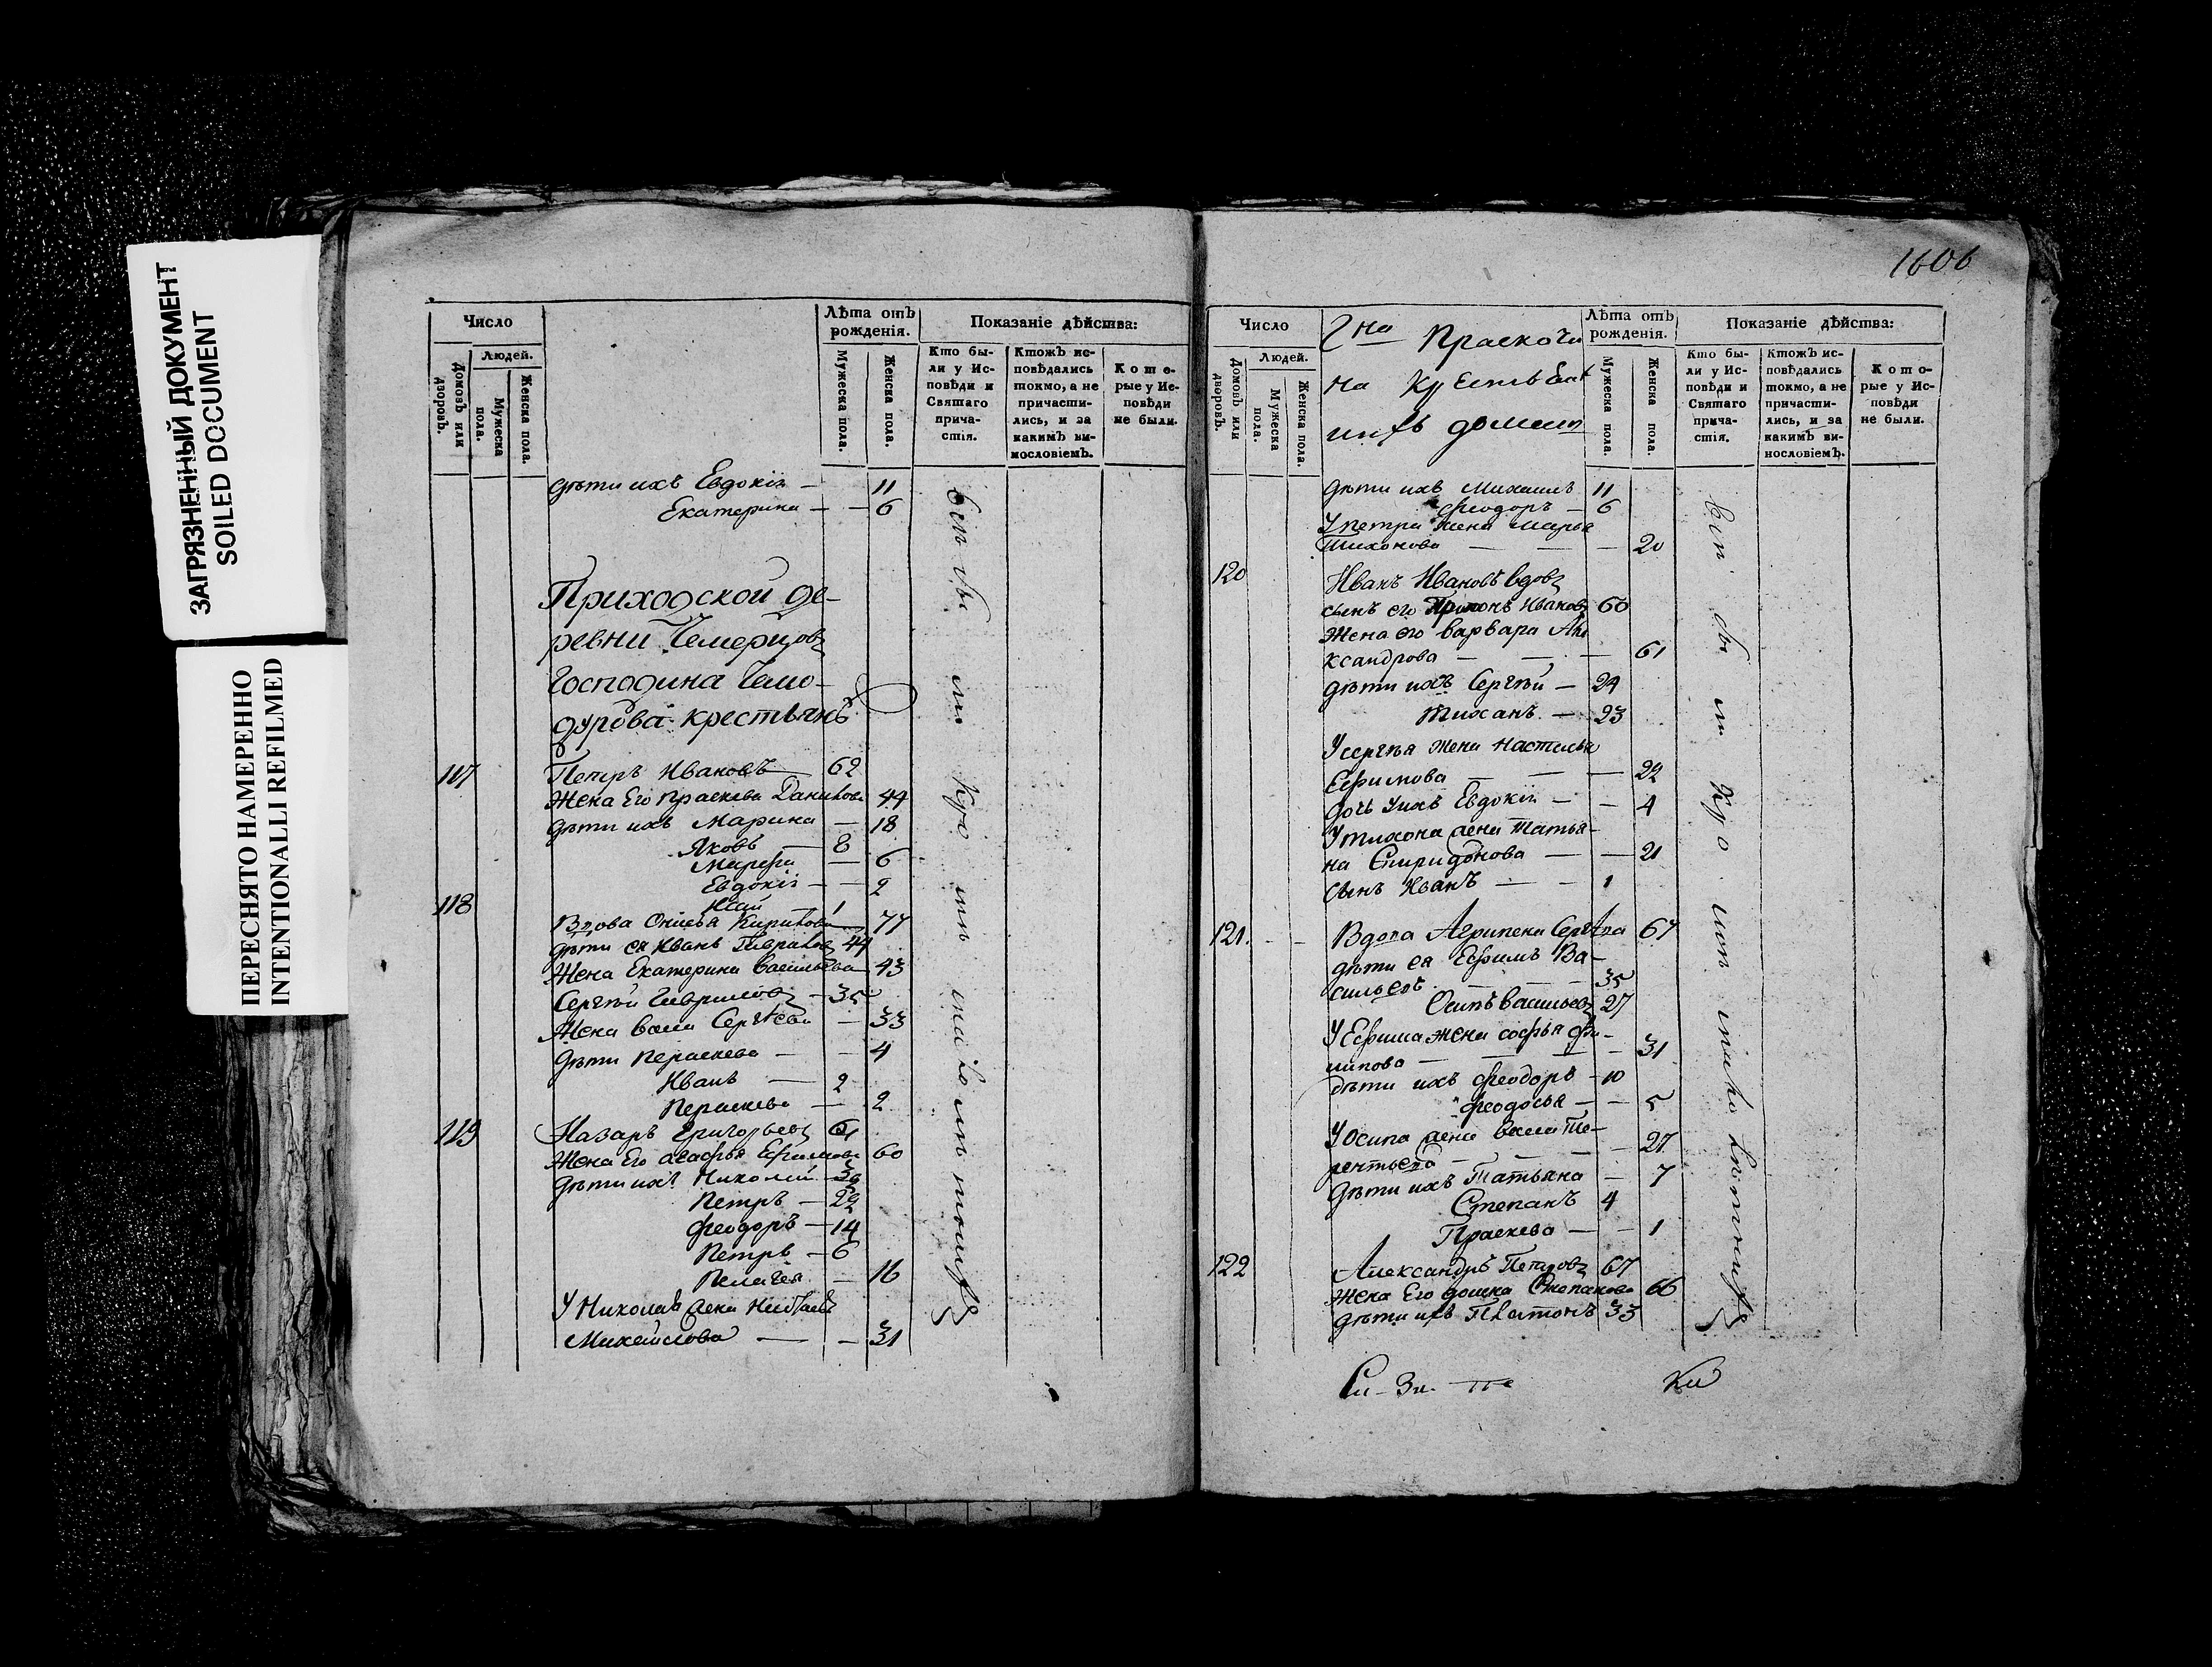 ЗАГРЯЗНЕННЫЙ ДОКУМЕНТ
SOILED DOCUMENT
ПЕРЕСНЯТО НАМЕРЕННО
INTENTIONALLI REFILMED
Число
Людей.
Домовъ или дворовъ.
Мужеска пола.
Женска пола.
Лѣта отъ рожденія.
Мужеска пола.
Женска пола.
Показаніе дѣйства:
Кто бы-
ли у Ис-
повѣди и
Святаго
прича-
стія.
Ктожъ ис-
повѣдались
токмо, а не
причасти-
лись, и за
какимъ ви-
нословіемъ.
Кото-
рые у Ис-
повѣди
не были.
дѣти ихъ Евдокія — 11
Екатерина — — 6
Приходской де-
ревни Чемерцовъ
Господина Чемо-
дурова крестьянъ
117 Петръ Ивановъ — 62
Жена Его праскева Данилова 44
дѣти ихъ Марина — 18
Яковъ — 8
Марфа — 6
Евдокія — — 2
1
118 Вдова Кирилова 77
дѣти ея Иванъ Гаврилов 44
Жена Екатерина Васильева 43
Сергѣй Гаврилов — 35
Жена Сергѣева — 33
дѣти Параскева — — 4
Иванъ — 2
Параскева — 2
119 Назаръ Григорьевъ 61
Жена Его агафья Ефимова 60
дѣти ихъ Николай
Петръ — 22
Феодоръ — 14
Петръ — 6
Пелагея — 16
У Николая жена
Михайлова — — 31
1606
Число
Людей.
Домовъ или дворовъ.
Мужеска пола.
Женска пола.
Гна
на
ихъ
Лѣта отъ рожденія.
Мужеска пола.
Женска пола.
Показаніе дѣйства:
Кто бы-
ли у Ис-
повѣди и
Святаго
прича-
стія.
Ктожъ ис-
повѣдались
токмо, а не
причасти-
лись, и за
какимъ ви-
нословіемъ.
Кото-
рые у Ис-
повѣди
не были.
дѣти ихъ Михаилъ 11
Феодоръ — 6
У петра жена Марья
Тихонова — — — 20
120 Иванъ Ивановъ вдовъ
сынъ его Ивановъ 60
Жена его варвара Але
ксандрова — — — 61
дѣти ихъ Сергѣй — 24
Тиханъ — 23
У сергѣя жена Настасья
Ефимова — — — 22
дочь у ихъ Евдокія — — 4
У тихона жена Татья-
на Спиридонова — — 21
сынъ Иванъ — — 1
121. Вдова Агрипена Сергѣва 67
дѣти ея Ефимъ Ва-
сильевъ — — 35
Осипъ васильевъ 27
У Ефима жена софья Фи-
липова — — — 31
дѣти ихъ феодоръ — 10
феодосья — — 5
У Осипа жена Те-
рентьева — — — 27
дѣти ихъ Татьяна — 7
Степанъ 4
Праскева — — 1
122 Александръ Петровъ 67
Жена Его домна Степанова 66
дѣти ихъ Платонъ 33